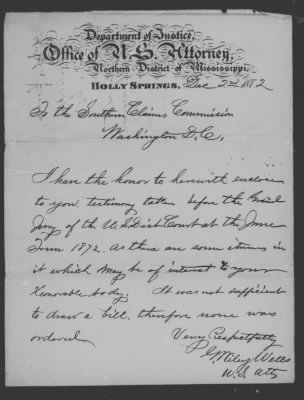 Department of Justice,
Office of U.S. Attorney,
Northern District of Mississippi,
HOLLY SPRINGS, Dec 2nd 1872
To the Southern Claims Commission
Washington D.C.,
I have the honor to herewith enclose
to you, testimony taken before the Grand
Jury of the U.S. Dist Court at the June
Term 1872. As there are some items in
it which may be of interest to your
Honorable body. It was not sufficient
to draw a bill, therefore none was
ordered.
Very Respectfully
G Wiley Wells
U.S. Atty